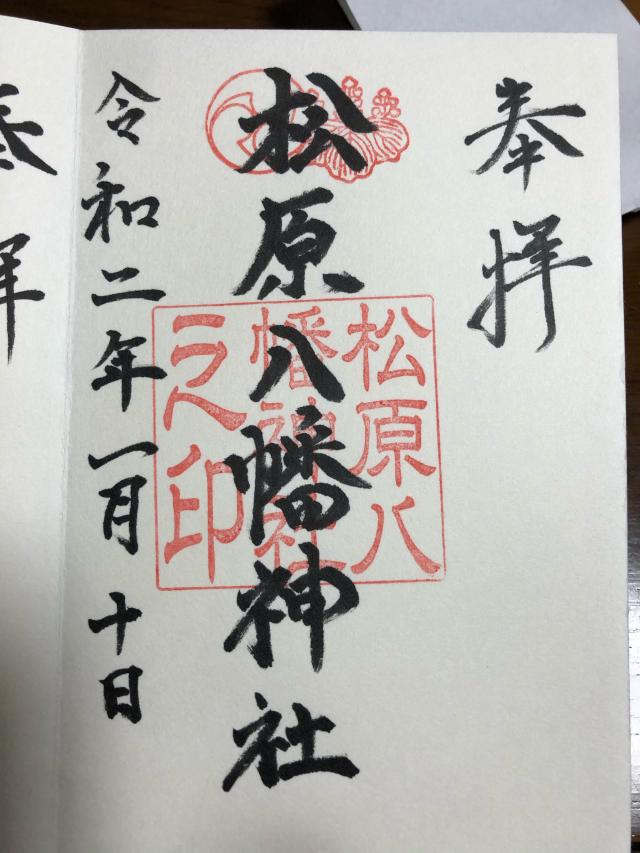 奉拝
松原八幡神社
松原八
幡神社
之印
令和二年一月十日
拝